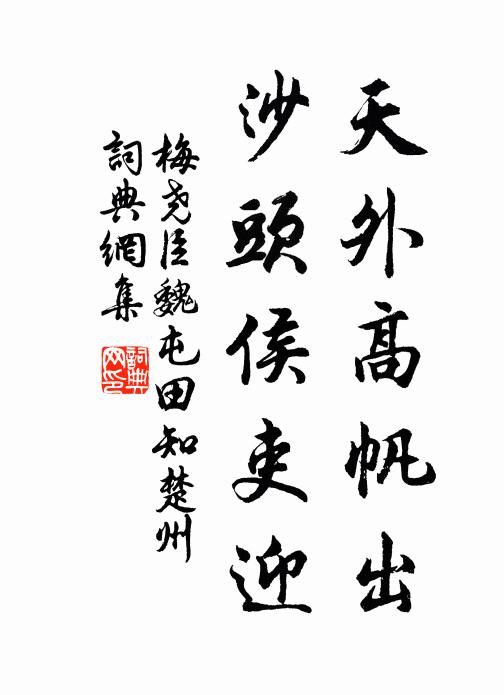 天外高帆出
沙頭侯吏迎
梅尧臣魏屯田知楚州
詞典網集
詞典網印